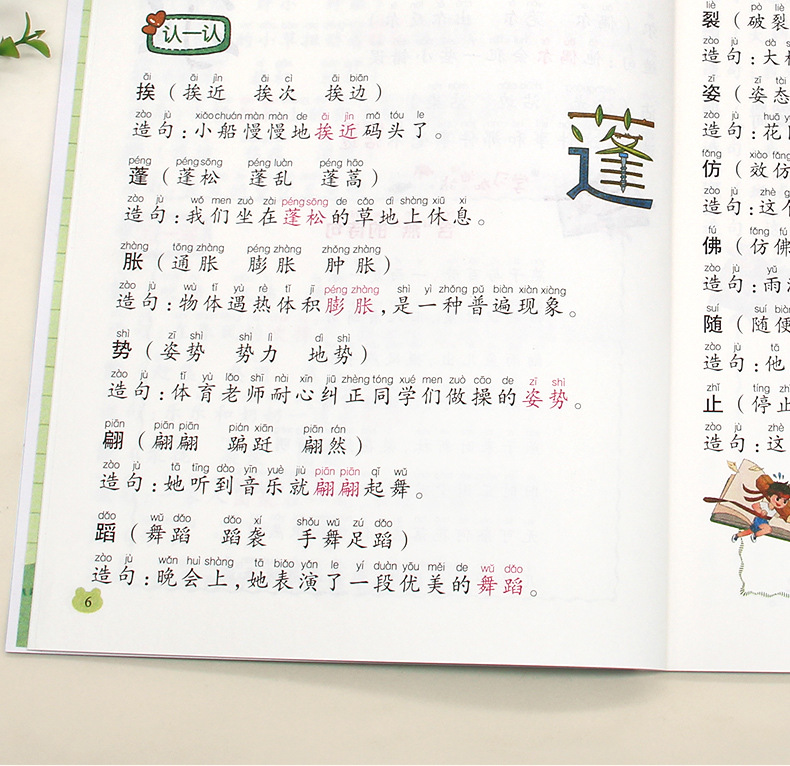 认一认
āi āi jìn āi cì āi biān
挨（挨近 挨次 挨边）
zào jù xiǎo chuán màn màn de āi jìn mǎ tóu le
造句：小船慢慢地挨近码头了。
péng péng sōng péng luàn péng hāo
蓬（蓬松 蓬乱 蓬蒿）
zào jù wǒ men zuò zài péng sōng de cǎo dì shàng xiū xi
造句：我们坐在蓬松的草地上休息。
zhàng tōng zhàng péng zhàng zhǒng zhàng
胀（通胀 膨胀 肿胀）
zào jù wù tǐ yù rè tǐ jī péng zhàng shì yì zhǒng pǔ biàn xiàn xiàng
造句：物体遇热体积膨胀，是一种普遍现象。
shì zī shì shì lì dì shì
势（姿势 势力 地势）
zào jù tǐ yù lǎo shī nài xīn jiū zhèng tóng xué men zuò cāo de zī shì
造句：体育老师耐心纠正同学们做操的姿势。
piān piān piān pián xiān piān rán
翩（翩翩 蹁跹 翩然）
zào jù tā tīng dào yīn yuè jiù piān piān qǐ wǔ
造句：她听到音乐就翩翩起舞。
dǎo wǔ dǎo dǎo xí shǒu wǔ zú dǎo
蹈（舞蹈 蹈袭 手舞足蹈）
zào jù wǎn huì shàng tā biǎo yǎn le yí duàn yōu měi de wǔ dǎo
造句：晚会上，她表演了一段优美的舞蹈。
6
蓬
liè pò liè
裂（破裂
zào jù dà
造句：大
zī zī tài
姿（姿态
zào jù huā
造句：花
fǎng xiào fǎng
仿（效仿
zào jù zhè
造句：这
fú fǎng fú
佛（仿佛
zào jù yǔ
造句：雨
suí suí biàn
随（随便
zào jù tā
造句：他
zhǐ tíng zhǐ
止（停止
zào jù zhè
造句：这